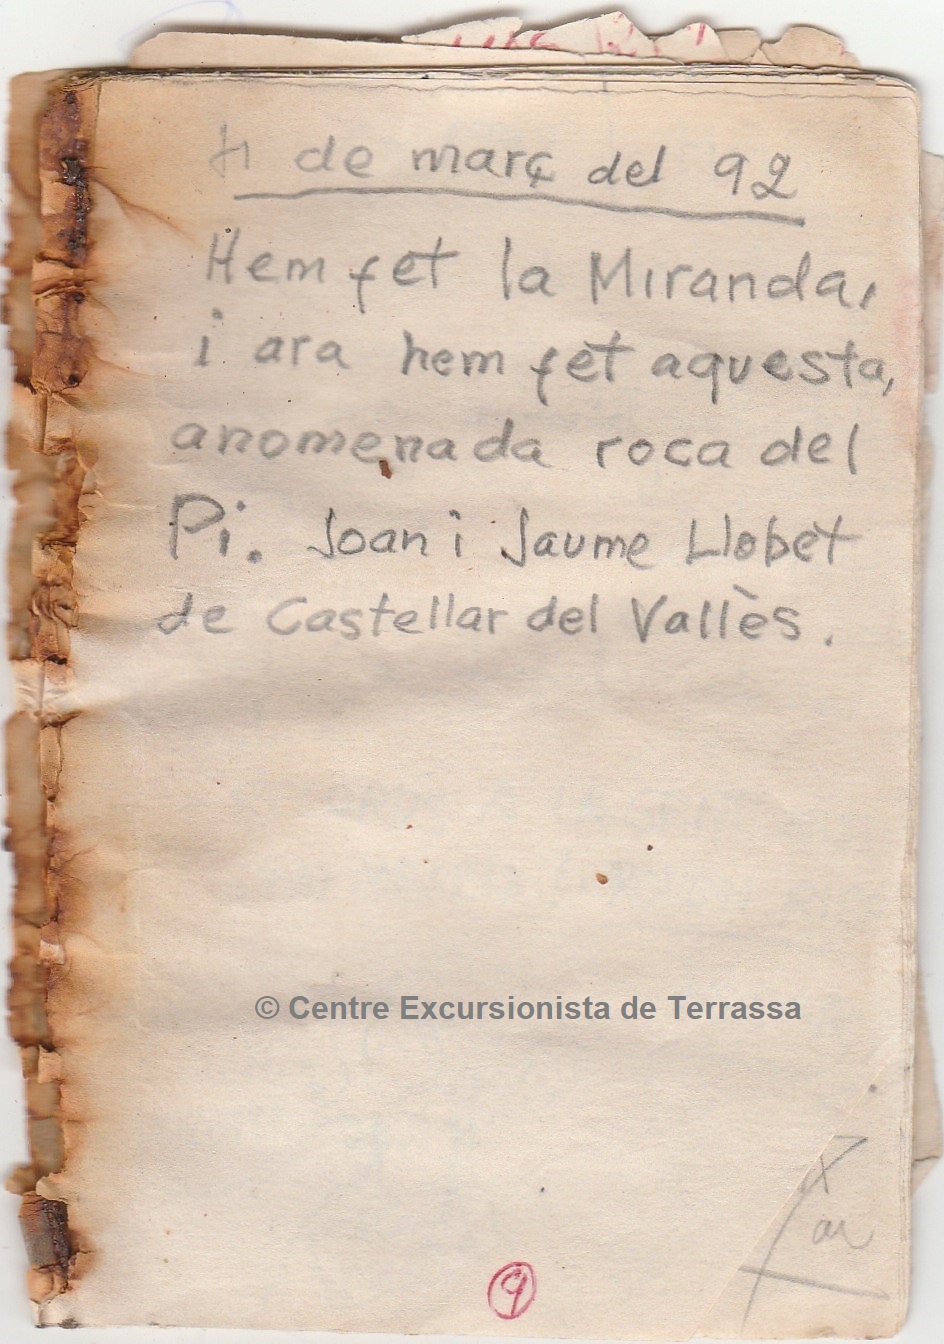 de març del 92
Hem fet la Miranda,
i ara hem fet aquesta,
anomenada roca del
Pi. Joan i Jaume Llobet
de Castellar del Vallès.
© Centre Excursionista de Terrassa
9